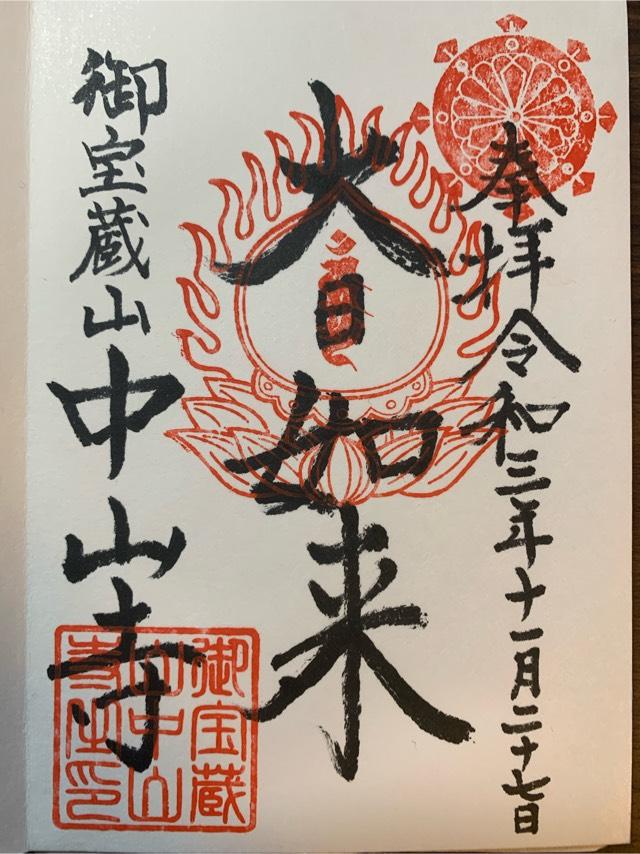 奉拝 令和三年十一月二十七日
大日如来
御宝蔵山 中山寺
御宝蔵
山中山
寺之印